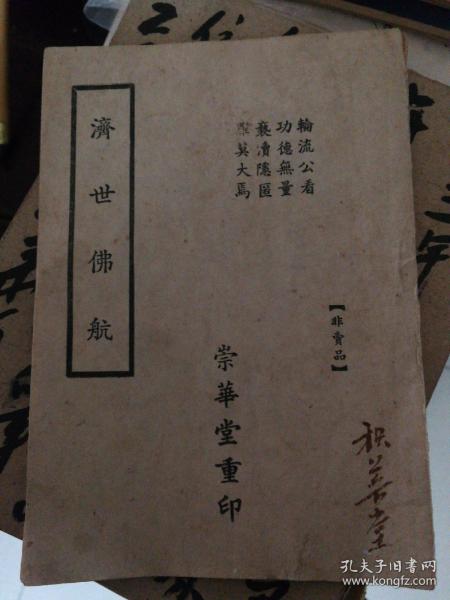 輪流公看
功德無量
褻瀆隱匿
罪莫大焉
濟世佛航
【非賣品】
崇華堂重印
积善堂
孔夫子旧书网
www.kongfz.com